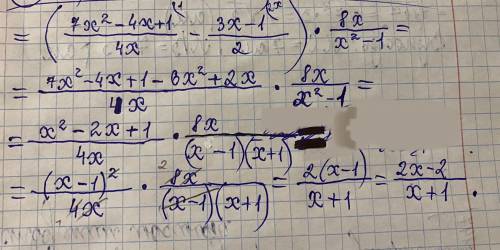 = ( (7x² - 4x + 1)/(4x) ⁽¹ - (3x - 1)/2 ⁽²ˣ ) · 8x/(x² - 1) =
= (7x² - 4x + 1 - 6x² + 2x)/(4x) · 8x/(x² - 1) =
= (x² - 2x + 1)/(4x) · 8x/((x - 1)(x + 1)) =
= (x - 1)²/(4x) · ² 8x/((x - 1)(x + 1)) = 2(x - 1)/(x + 1) = (2x - 2)/(x + 1) .